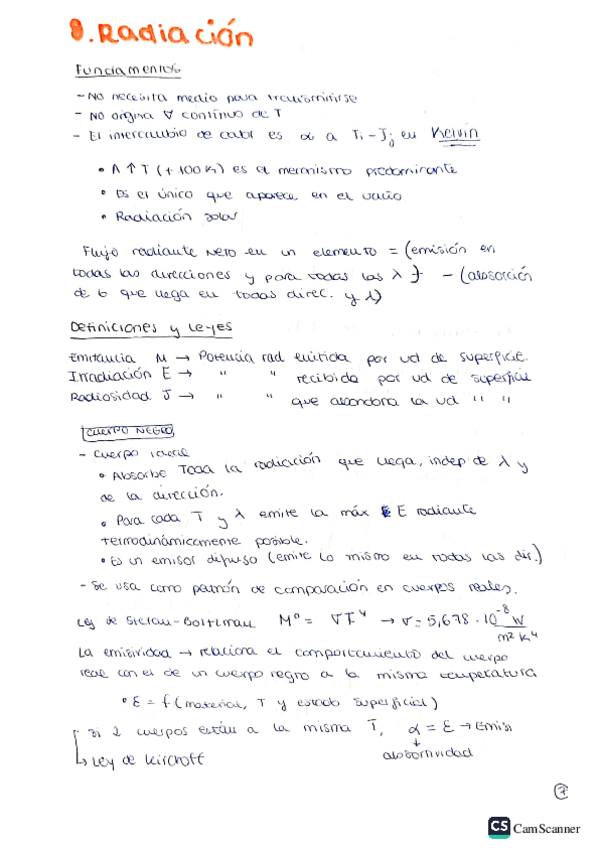 8. Radiación
Fundamentos
- No necesita medio para transmitirse
- No origina ∇ continuo de T
- El intercambio de calor es α a Ti - Tj en Kelvin
• A ↑ T (+ 100 K) es el mecanismo predominante
• Es el único que aparece en el vacío
• Radiación solar
Flujo radiante neto en un elemento = (emisión en
todas las direcciones y para todas las λ) - (absorción
de lo que llega en todas direc. y λ)
Definiciones y Leyes
Emitancia M → Potencia rad emitida por ud de superficie.
Irradiación E → " " recibida por ud de superficie
Radiosidad J → " " que abandona la ud " "
CUERPO NEGRO
- Cuerpo ideal
• Absorbe Toda la radiación que llega, indep de λ y
de la dirección.
• Para cada T y λ emite la máx E radiante
termodinámicamente posible.
• Es un emisor difuso (emite lo mismo en todas las dir.)
- Se usa como patrón de comparación en cuerpos reales.
Ley de Stefan-Boltzman M° = ∇T⁴ → σ = 5,678 · 10⁻⁸ W
m² K⁴
La emisividad → relaciona el comportamiento del cuerpo
real con el de un cuerpo negro a la misma temperatura
• ε = f (material, T y estado superficial)
Si 2 cuerpos están a la misma T, α = ε → Emisi
absortividad
↳ Ley de Kircroft
7
CS CamScanner